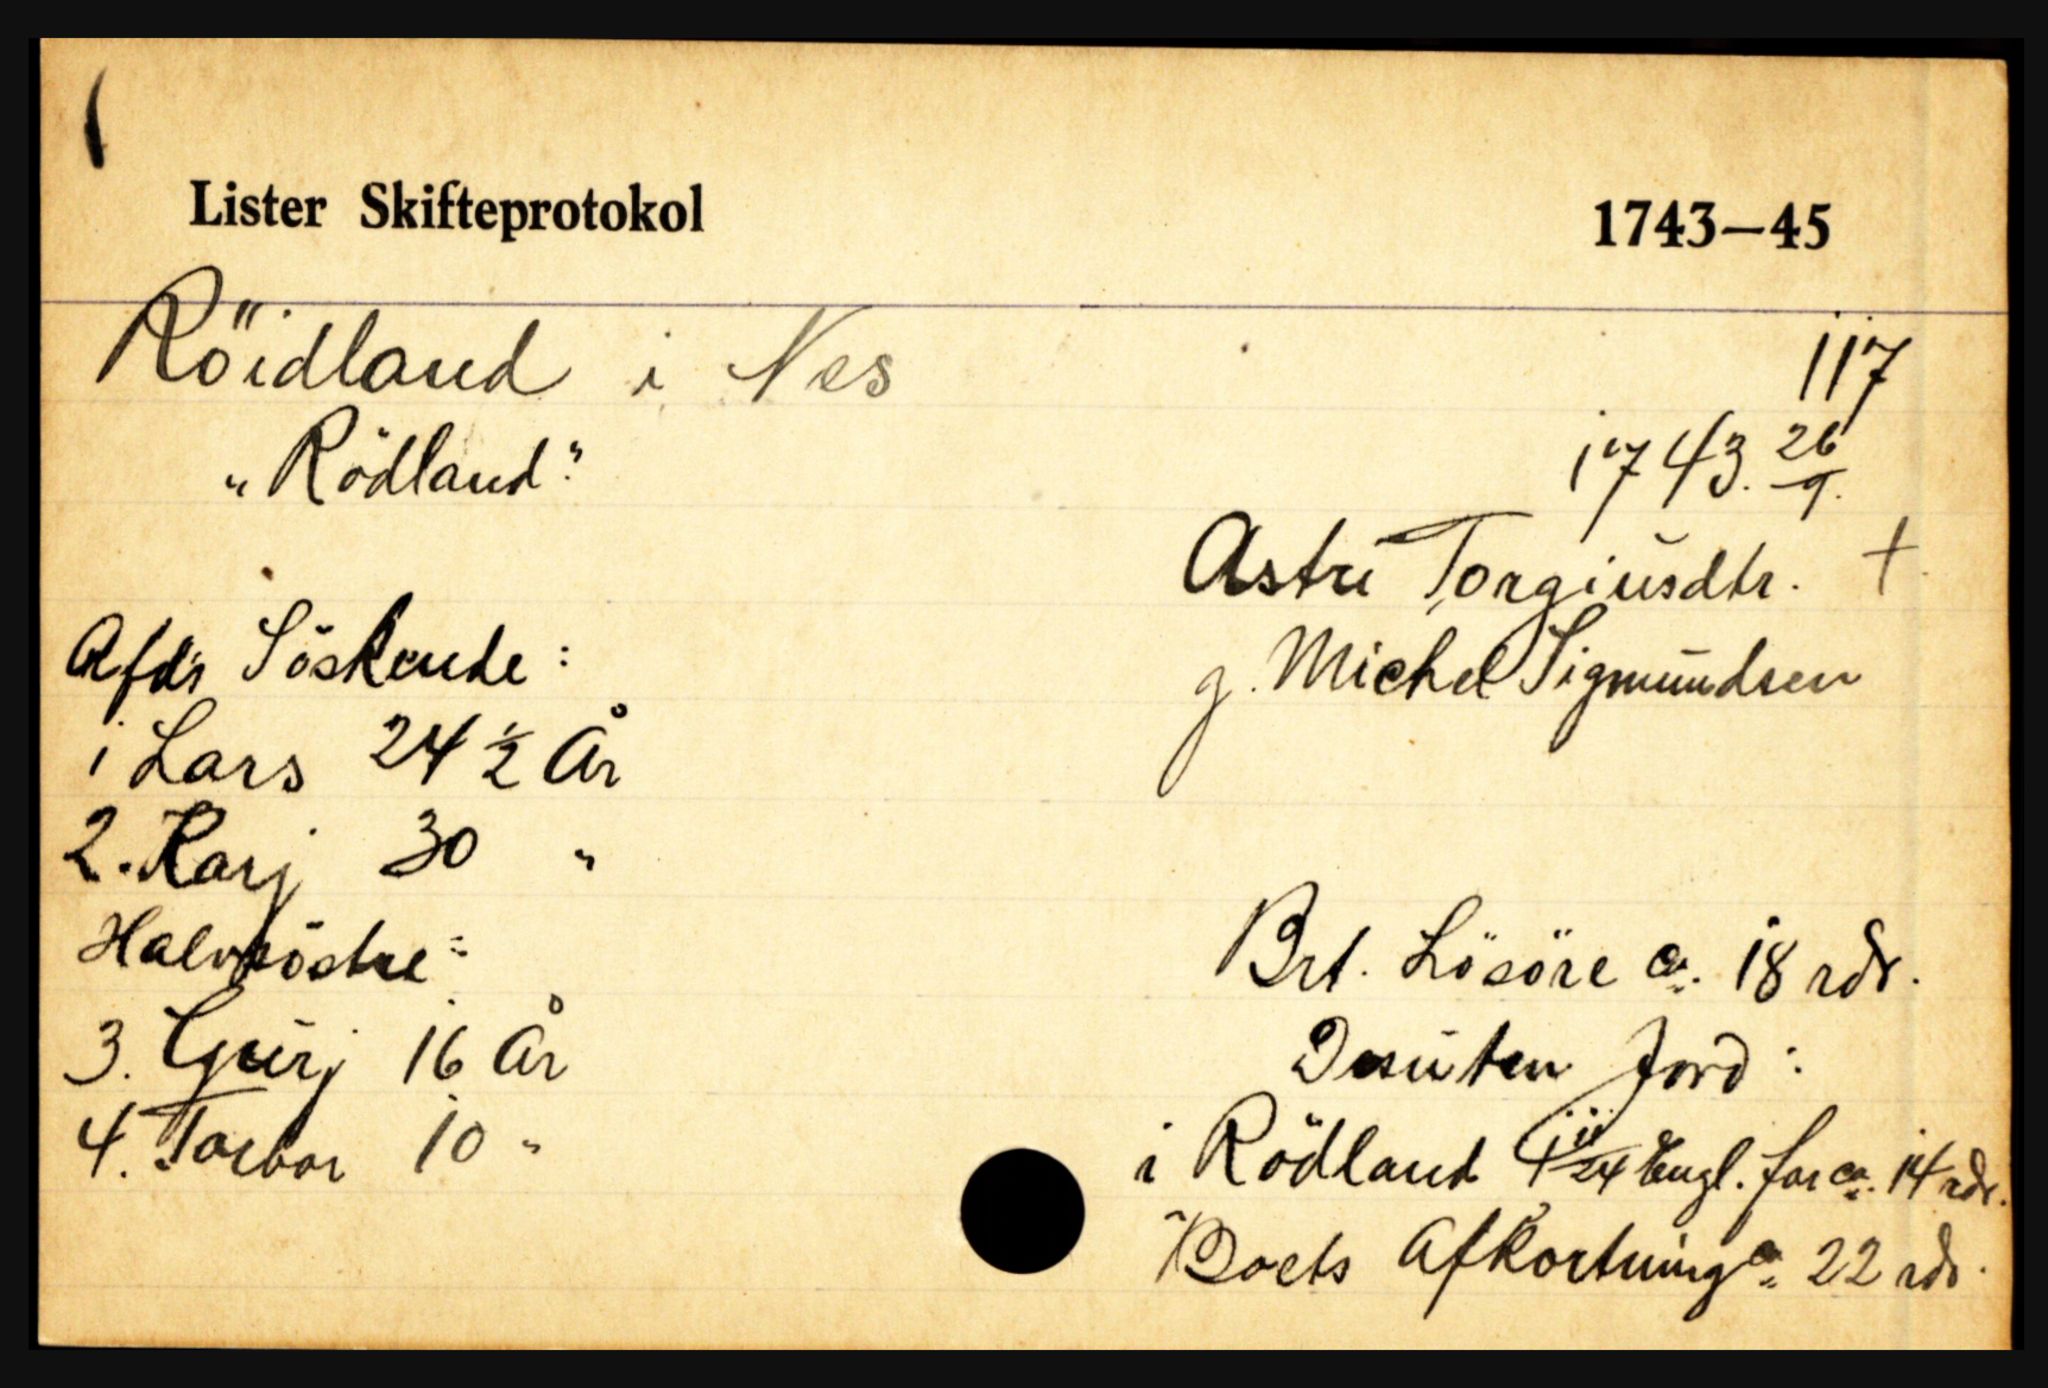 Lister Skifteprotokol 1743–45
Röidland i Nes
117
„Rödland"
1743. 26/9.
Astri Torgiusdtr. †
g. Michel Sigmundsen
Afd's Söskende:
1 Lars 24 ½ År
2. Karj 30 "
Halvsöstre:
3. Gurj 16 År
4. Torbor 10 "
Brt. Lösöre ca. 18 rdr.
Desuten Jord:
i Rödland 4 11/24 Engl. for ca. 14 rdr.
Boets Afkortning ca. 22 rdr.